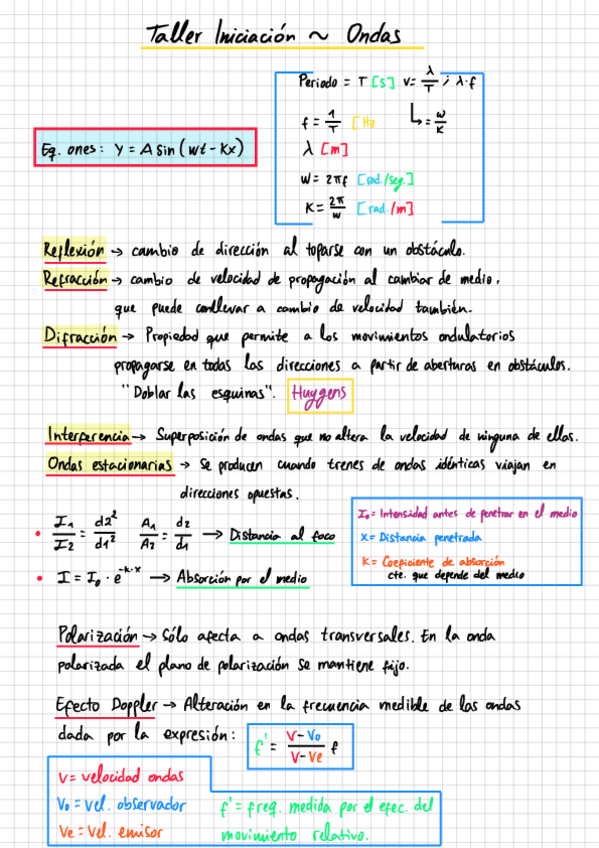 Taller Iniciación ~ Ondas
Periodo = T [s] v = λ/T ; λ·f
f = 1/T [Hz ↳ = w/K
Eq. ones: y = A sin (wt - kx)
λ [m]
W = 2πf [rad./seg.]
K = 2π/w [rad./m]
Reflexión → cambio de dirección al toparse con un obstáculo.
Refracción → cambio de velocidad de propagación al cambiar de medio,
que puede conllevar a cambio de velocidad también.
Difracción → Propiedad que permite a los movimientos ondulatorios
propagarse en todas las direcciones a partir de aberturas en obstáculos.
"Doblar las esquinas". Huygens
Interferencia → Superposición de ondas que no altera la velocidad de ninguna de ellas.
Ondas estacionarias → Se producen cuando trenes de ondas idénticas viajan en
direcciones opuestas.
• I₁/I₂ = d2²/d1² A₁/A₂ = d₂/d₁ → Distancia al foco
• I = I₀ · e^-k·x → Absorción por el medio
I₀ = Intensidad antes de penetrar en el medio
X = Distancia penetrada
K = Coeficiente de absorción
cte. que depende del medio
Polarización → Sólo afecta a ondas transversales. En la onda
polarizada el plano de polarización se mantiene fijo.
Efecto Doppler → Alteración en la frecuencia medible de las ondas
dada por la expresión: f' = (V - Vo)/(V - Ve) f
V = velocidad ondas
Vo = vel. observador
Ve = Vel. emisor
f' = freq. medida por el efec. del
movimiento relativo.